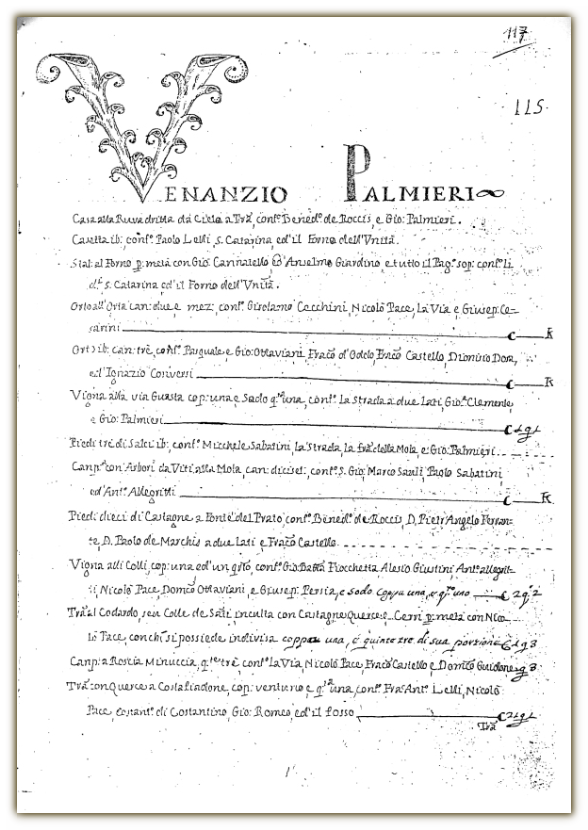 117
115
VENANZIO PALMIERI
Casa alla Ruva dritta da Cielo a Trã, conf. Bened.º de Roccis, e Gio: Palmieri.
Casetta ib: conf. Paolo Lelli, s. Catarina, ed il Forno dell'Vnità.
Stal: al Forno p: metà con Gio: Cannatello, ed Anselmo Giardino, e tutto il Pag.º sop: conf. li
d.i s. Catarina ed il Forno dell'Vnità.
Orto all'Orta can: due e mez: conf. Girolamo Cecchini, Nicolò Pace, La Via e Giusep: Ce-
sarini C R
Ort. ib: can: trè, conf. Pasquale e Gio: Ottaviani, Franc.º Castello, Dionisio Dora,
ed Ignazio Coriversi C R
Vigna alla via Guasta cop: una e Sodo q.ta una, conf. La Strada a due Lati, Gio: Clemente,
e Gio: Palmieri C 1 q 1
Piedi tre di Salci ib: conf. Micchele Sabatini, la Strada, la della Mola, e Gio: Palmieri
Canp: con Arbori da Viti alla Mola, can: diciset: conf. S. Gio: Marco Santi, Paolo Sabatini
ed Ant.º Allegritti C R
Piedi dieci di Castagne a Ponte del Prato, conf. Bened.º de Roccis, D. Pietr'Angelo Ferran-
te, D. Paolo de Marchis a due Lati e Franc.º Castello
Vigna alli Colli, cop: una ed un q.to, conf. Gio: Batta Fiocchetta, Alesio Giustini, Ant.º Allegrit-
ti, Nicolò Pace, Dom.co Ottaviani, e Giusep: Persia, e sodo coppa una, e q.to uno C 2 q 2
Trã al Codardo, seu Colle de Salci inculta con Castagne Querce e Cerri p: metà con Nico-
lò Pace, con chi si possiede indivisa coppa una, e quinte tre di sua portione C 1 q 3
Canp: a Roscia Minuccia, q.te trè, conf. la Via, Nicolò Pace, Franc.º Castello e Dom.co Guidone q 3
Trã con Querce a Costafradone, cop: venturio e q.ta una, conf. Fra Ant.º Lelli, Nicolò
Pace, Costant.º di Costantino, Gio: Romeo, ed il fosso C 21 q 1
Trã
1